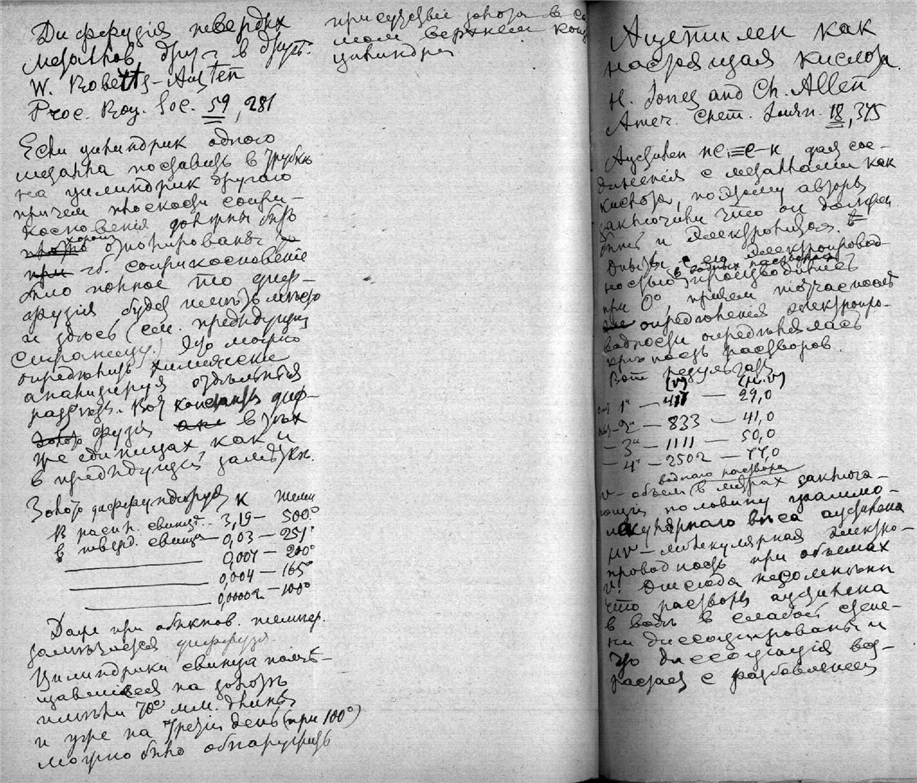 Диффузія твердых
металлов друг в друг.
W. Roberts-Austen
Proc. Roy. Soc. 59, 281
Если цилиндрик одного
металла поставить в трубки
на цилиндрик другого
причем плоскости сопри-
косновенія должны быть
хорошо
отполированы
чб. соприкосновеніе
было полное то диф-
фузія будет имѣть мѣсто
и здѣсь (см. предидущую
страницу). Это можно
опредѣлить химически
анализируя отдѣльныя
Вот константы диф-
фузіи в тѣх
же единицах как и
в предидущей замѣтки.
Золото диффундируя К темп
В распл. свинцѣ - 3,19 - 500°
В тверд. свинцѣ - 0,03 - 251°
0,007 - 200°
0,004 - 165°
0,00002 - 100°
Даже при обыкнов. темпер.
замѣчается диффуз.
Цилиндрики свинца помѣ-
щавшіеся на золотѣ
имѣли 70 мм. длины
и уже на третій день (при 100°)
можно было обнаружить
присутствіе золота в са
мом верхнем конц
цилиндра
Ацетилен как
настоящая кислота.
H. Jones and Ch. Allen
Amer. Chem. Journ. 18, 375
Ацетилен HC≡C-H дает сое-
диненія с металлами как
кислота, поэтому авторы
заключили что он должен
быть и электролитом.
Опыты с его электропровод-
в водных растворах
ностью производились
при 0° причем
опредѣленія электропро-
водности опредѣлялась
растворов.
Вот результаты
(v) (μ.v)
1" - 417 - 29,0
2" - 833 - 41,0
3" - 1111 - 50,0
4" - 2502 - 77,0
водного раствора
v - объем в литрах заключа-
ющих половину граммо-
лекулярнаго вѣса ацетилена
μv - молекулярная электро-
проводность при объемах
v. Отсюда
что растворы ацетилена
в водѣ в слабой степе-
ни диссоціированы и
что диссоціація воз-
растает с разбавленіем